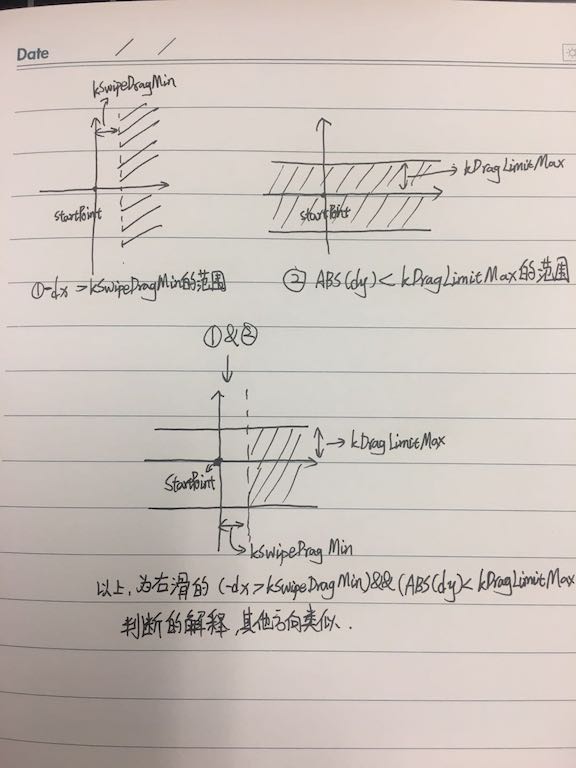 Date / /
kSwipeDragMin
startPoint
①-dx > kSwipeDragMin的范围
kDragLimitMax
startPoint
② ABS(dy) < kDragLimitMax的范围
①&②
kDragLimitMax
StartPoint
kSwipeDragMin
以上,为右滑的 (-dx > kSwipeDragMin)&&(ABS(dy) < kDragLimitMax
判断的解释,其他方向类似.